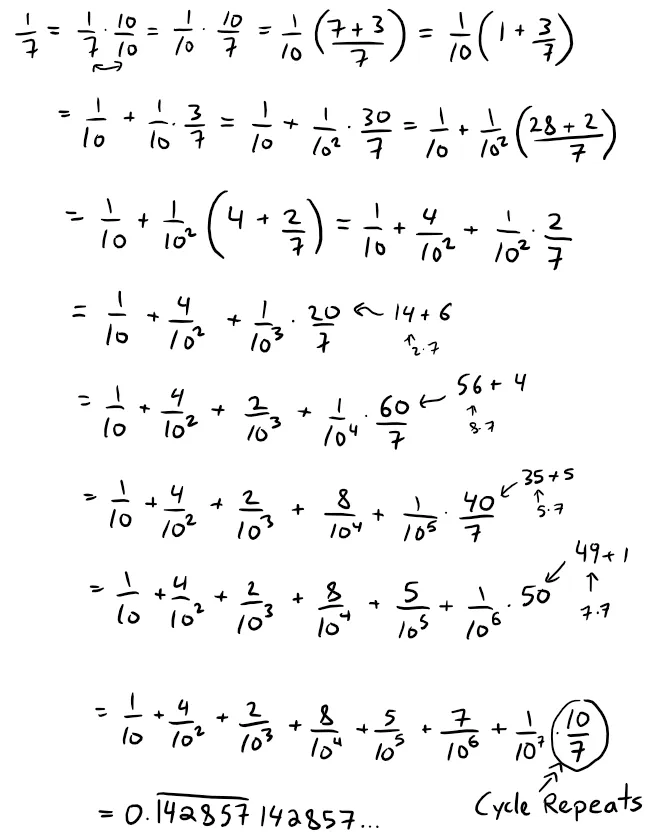 1/7 = 1/7 · 10/10 = 1/10 · 10/7 = 1/10 (7+3/7) = 1/10 (1 + 3/7)
= 1/10 + 1/10 · 3/7 = 1/10 + 1/10² · 30/7 = 1/10 + 1/10² (28+2/7)
= 1/10 + 1/10² (4 + 2/7) = 1/10 + 4/10² + 1/10² · 2/7
= 1/10 + 4/10² + 1/10³ · 20/7 ← 14 + 6
↑
2·7
= 1/10 + 4/10² + 2/10³ + 1/10⁴ · 60/7 ← 56 + 4
↑
8·7
= 1/10 + 4/10² + 2/10³ + 8/10⁴ + 1/10⁵ · 40/7 ← 35+5
↑
5·7
= 1/10 + 4/10² + 2/10³ + 8/10⁴ + 5/10⁵ + 1/10⁶ · 50 ← 49+1
↑
7·7
= 1/10 + 4/10² + 2/10³ + 8/10⁴ + 5/10⁵ + 7/10⁶ + 1/10⁷ · 10/7
Cycle Repeats
= 0.1̅4̅2̅8̅5̅7̅ 142857...